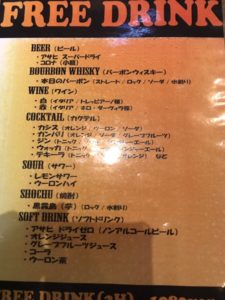 FREE DRINK
BEER (ビール)
・アサヒ スーパードライ
・コロナ (小瓶)
BOURBON WHISKY (バーボンウィスキー)
・本日のバーボン (ストレート / ロック / ソーダ / 水割り)
WINE (ワイン)
・白 (イタリア / トレッビアーノ種)
・赤 (イタリア / ネロ・ダーヴォラ種)
COCKTAIL (カクテル)
・カシス (オレンジ / ウーロン / ソーダ)
・カンパリ (オレンジ / ソーダ / グレープフルーツ)
・ジン (トニック /
・ウォッカ (トニック / ジンジャーエール)
・テキーラ (トニック / オレンジ) など
SOUR (サワー)
・レモンサワー
・ウーロンハイ
SHOCHU (焼酎)
・黒霧島 (芋) (ロック / 水割り)
SOFT DRINK (ソフトドリンク)
・アサヒ ドライゼロ (ノンアルコールビール)
・オレンジジュース
・グレープフルーツジュース
・コーラ
・ウーロン茶
FREE DRINK (2H)